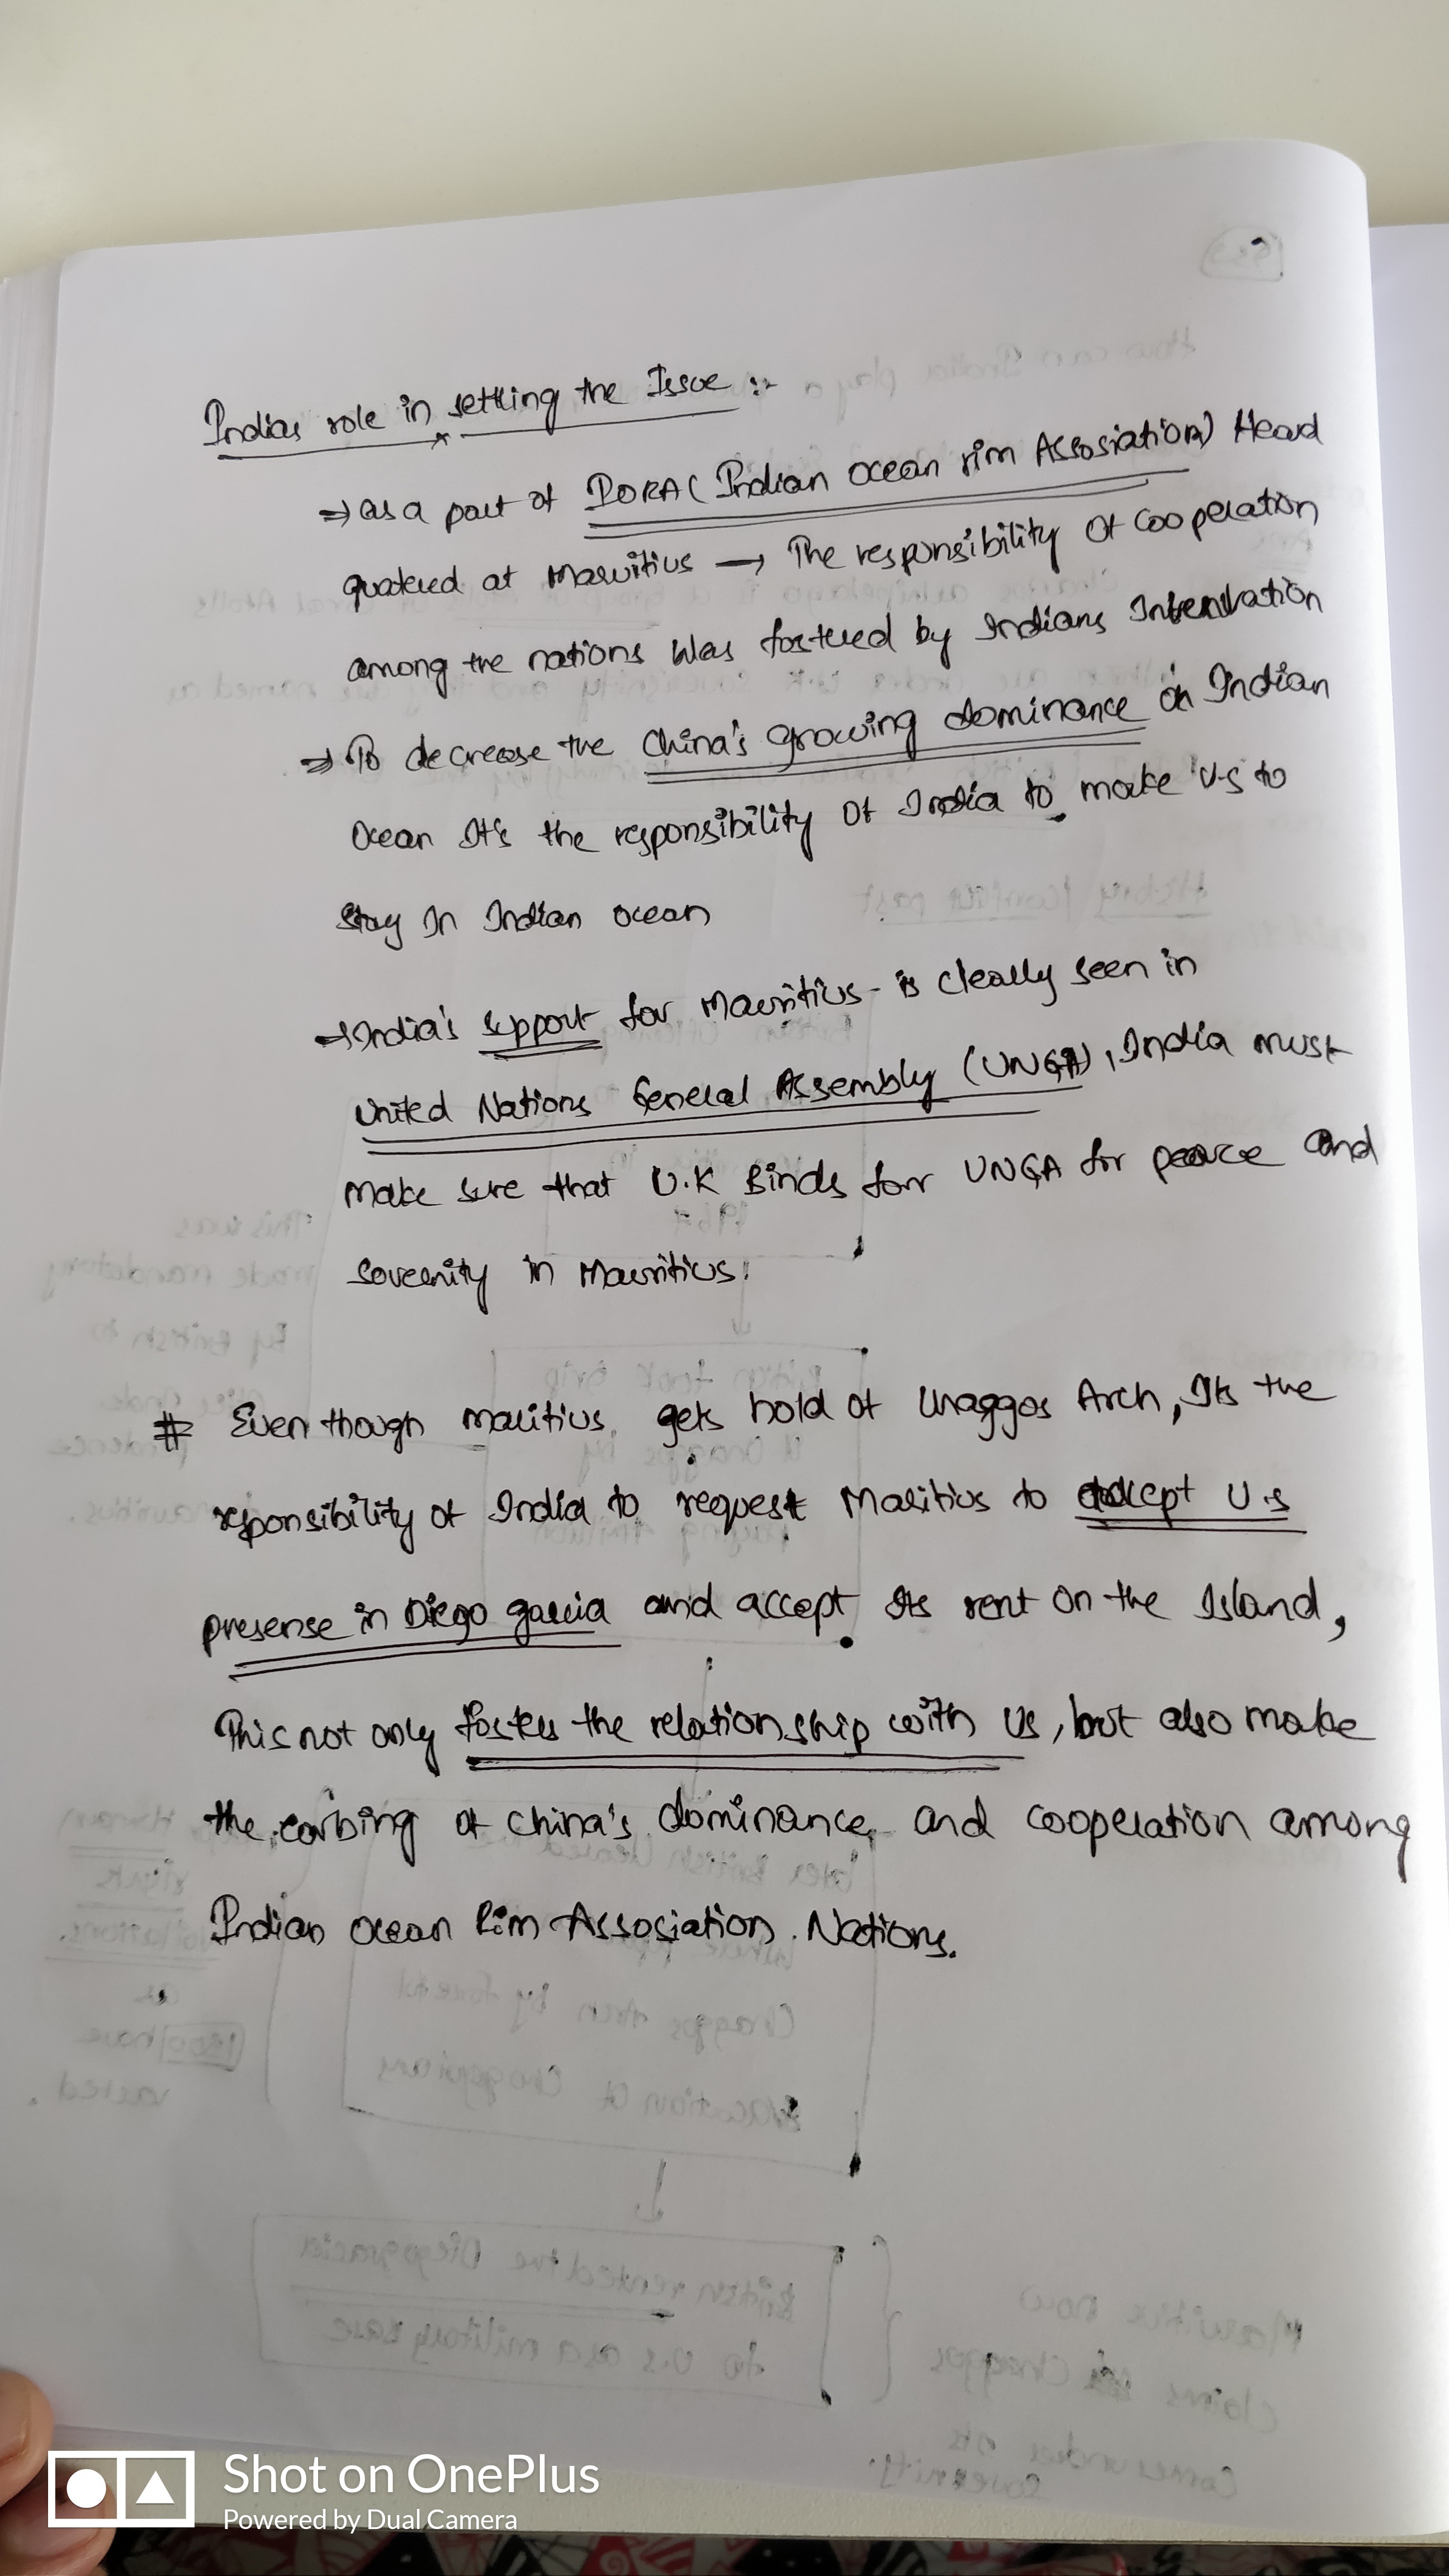 Indias role in settling the Issue :-
⇒ as a part of IORA ( Indian ocean rim Assosiation) Head
quateed at Mauritius → The responsibility of cooperation
among the nations was fosteed by Indians Intenvation
⇒ To decrease the China's growing dominance on Indian
Ocean It's the responsibility of India to make U.S to
stay In Indian ocean
⇒ India's support for Mauritius - is clearly seen in
United Nations General Assembly (UNGA), India must
make sure that U.K Binds for UNGA for peace and
soveenity in Mauritius.
# Even though mauitius gets hold of Chaggos Arch, Its the
responsibility of India to request Mauitius to accept U.S
presense in Diego garcia and accept its rent on the Island,
This not only fosters the relationship with US, but also make
the curbing of china's dominance and cooperation among
Indian ocean Rim Association Nations.
Shot on OnePlus
Powered by Dual Camera